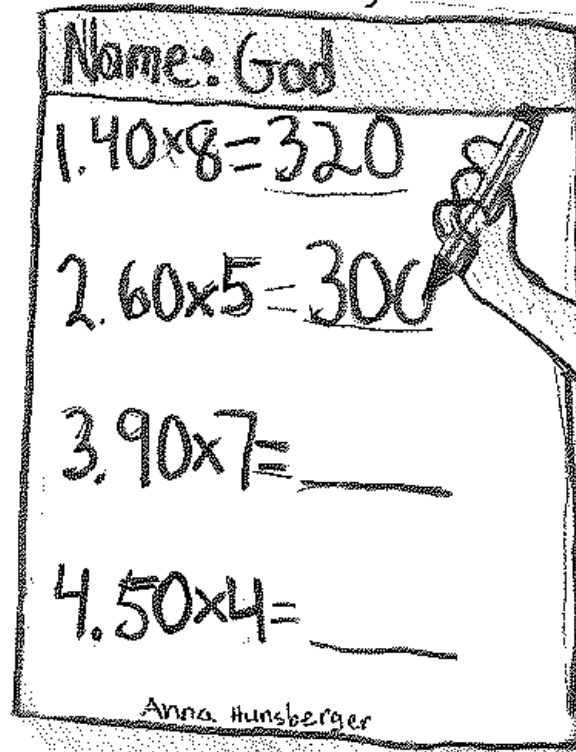 Name: God
1. 40x8=320
2. 60x5=300
3. 90x7=
4. 50x4=
Anna Hunsberger